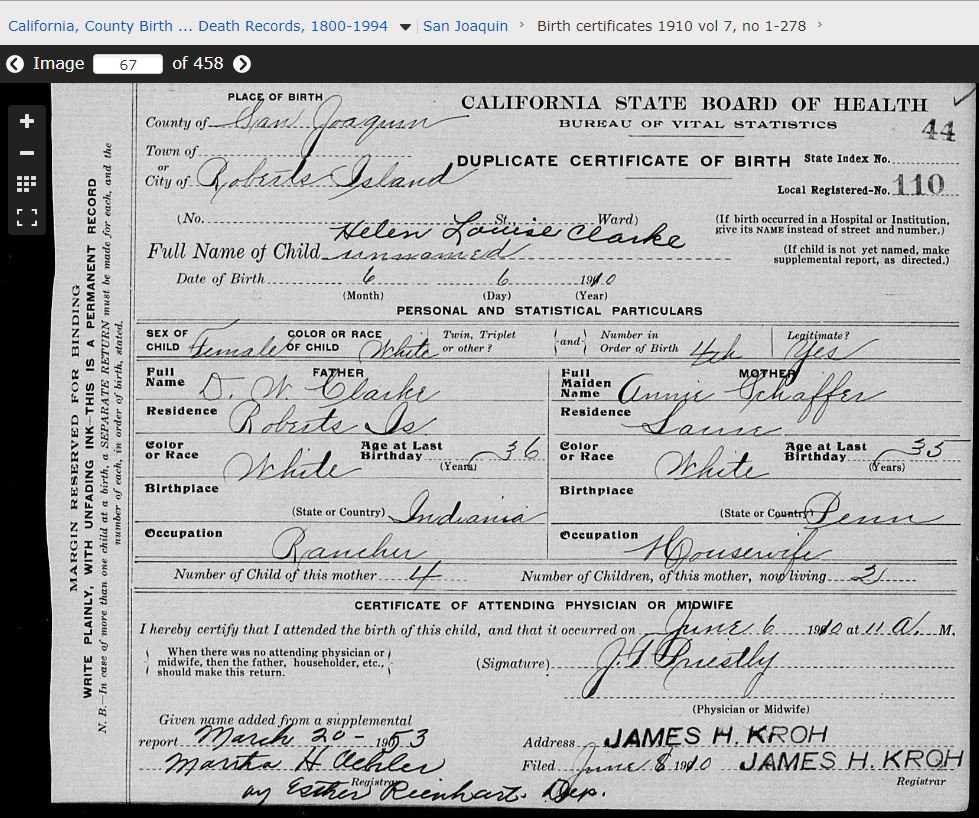 California, County Birth ... Death Records, 1800-1994 San Joaquin Birth certificates 1910 vol 7, no 1-278
Image 67 of 458
MARGIN RESERVED FOR BINDING
WRITE PLAINLY, WITH UNFADING INK—THIS IS A PERMANENT RECORD
N. B.—In case of more than one child at a birth, a SEPARATE RETURN must be made for each, and the
number of each, in order of birth, stated.
PLACE OF BIRTH
CALIFORNIA STATE BOARD OF HEALTH
County of San Joaquin
BUREAU OF VITAL STATISTICS
44
Town of
or
City of Roberts Island
DUPLICATE CERTIFICATE OF BIRTH
State Index No.
Local Registered-No. 110
(No. St., Ward)
(If birth occurred in a Hospital or Institution,
give its NAME instead of street and number.)
Helen Louise Clarke
Full Name of Child unnamed
(If child is not yet named, make
supplemental report, as directed.)
Date of Birth 6 6 1910
(Month) (Day) (Year)
PERSONAL AND STATISTICAL PARTICULARS
SEX OF CHILD Female COLOR OR RACE OF CHILD White Twin, Triplet or other? and Number in Order of Birth 4th Legitimate? Yes
FATHER
Full Name D. W. Clarke
Residence Roberts Is
Color or Race White Age at Last Birthday 36 (Years)
Birthplace
(State or Country) Indiania
Occupation Rancher
MOTHER
Full Maiden Name Annie Schaffer
Residence Same
Color or Race White Age at Last Birthday 35 (Years)
Birthplace
(State or Country) Penn
Occupation Housewife
Number of Child of this mother 4 Number of Children, of this mother, now living 3
CERTIFICATE OF ATTENDING PHYSICIAN OR MIDWIFE
I hereby certify that I attended the birth of this child, and that it occurred on June 6 1910 at 11 A. M.
When there was no attending physician or
midwife, then the father, householder, etc.,
should make this return.
(Signature) J. T. Priestly
(Physician or Midwife)
Given name added from a supplemental
report March 20 - 1953
Address JAMES H. KROH
Martha H
Filed June 8 1910 JAMES H. KROH
Registrar
Registrar
by Esther Rienhart. Dep.